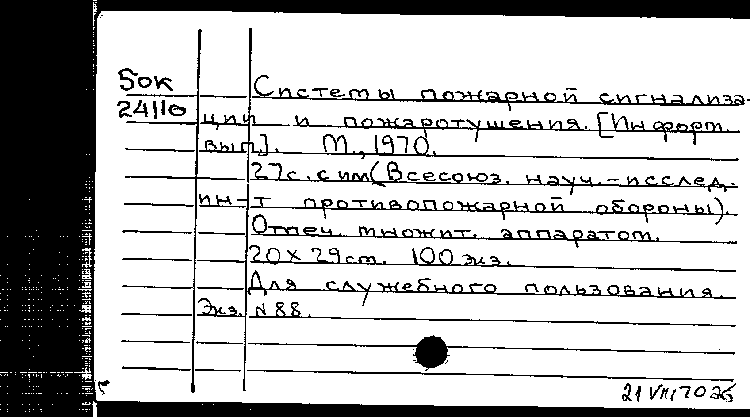 50к
24110
Системы пожарной сигнализа-
ции и пожаротушения. [Информ.
вып.]. М., 1970.
27с. с ил (Всесоюз. науч.-исслед.
ин-т противопожарной обороны).
Отпеч. множит. аппаратом.
20 x 29 см. 100 экз.
Для служебного пользования.
Экз. N 88.
21 VIII 70